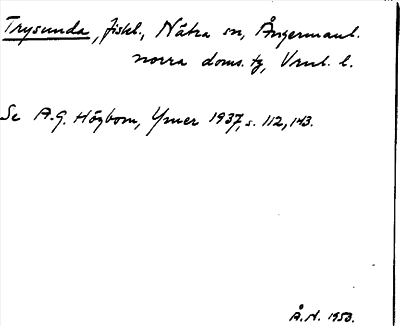 Trysunda, fiskl., Nätra sn, Ångermanl.
norra doms. tg, Vrnl. l.
Se A.G. Högbom, Ymer 1937, s. 112, 143.
Å.N. 1950.